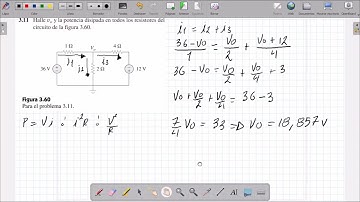 3.11 Halle v₀ y la potencia disipada en todos los resistores del
circuito de la figura 3.60.
1 Ω
v₀
4 Ω
36 V
i1
i2
2 Ω
i3
12 V
Figura 3.60
Para el problema 3.11.
P = Vi ó i²R ó V²/R
i1 = i2 + i3
(36 - V0)/1 = V0/2 + (V0 + 12)/4
36 - V0 = V0/2 + V0/4 + 3
V0 + V0/2 + V0/4 = 36 - 3
7/4 V0 = 33 => V0 = 18,857 V